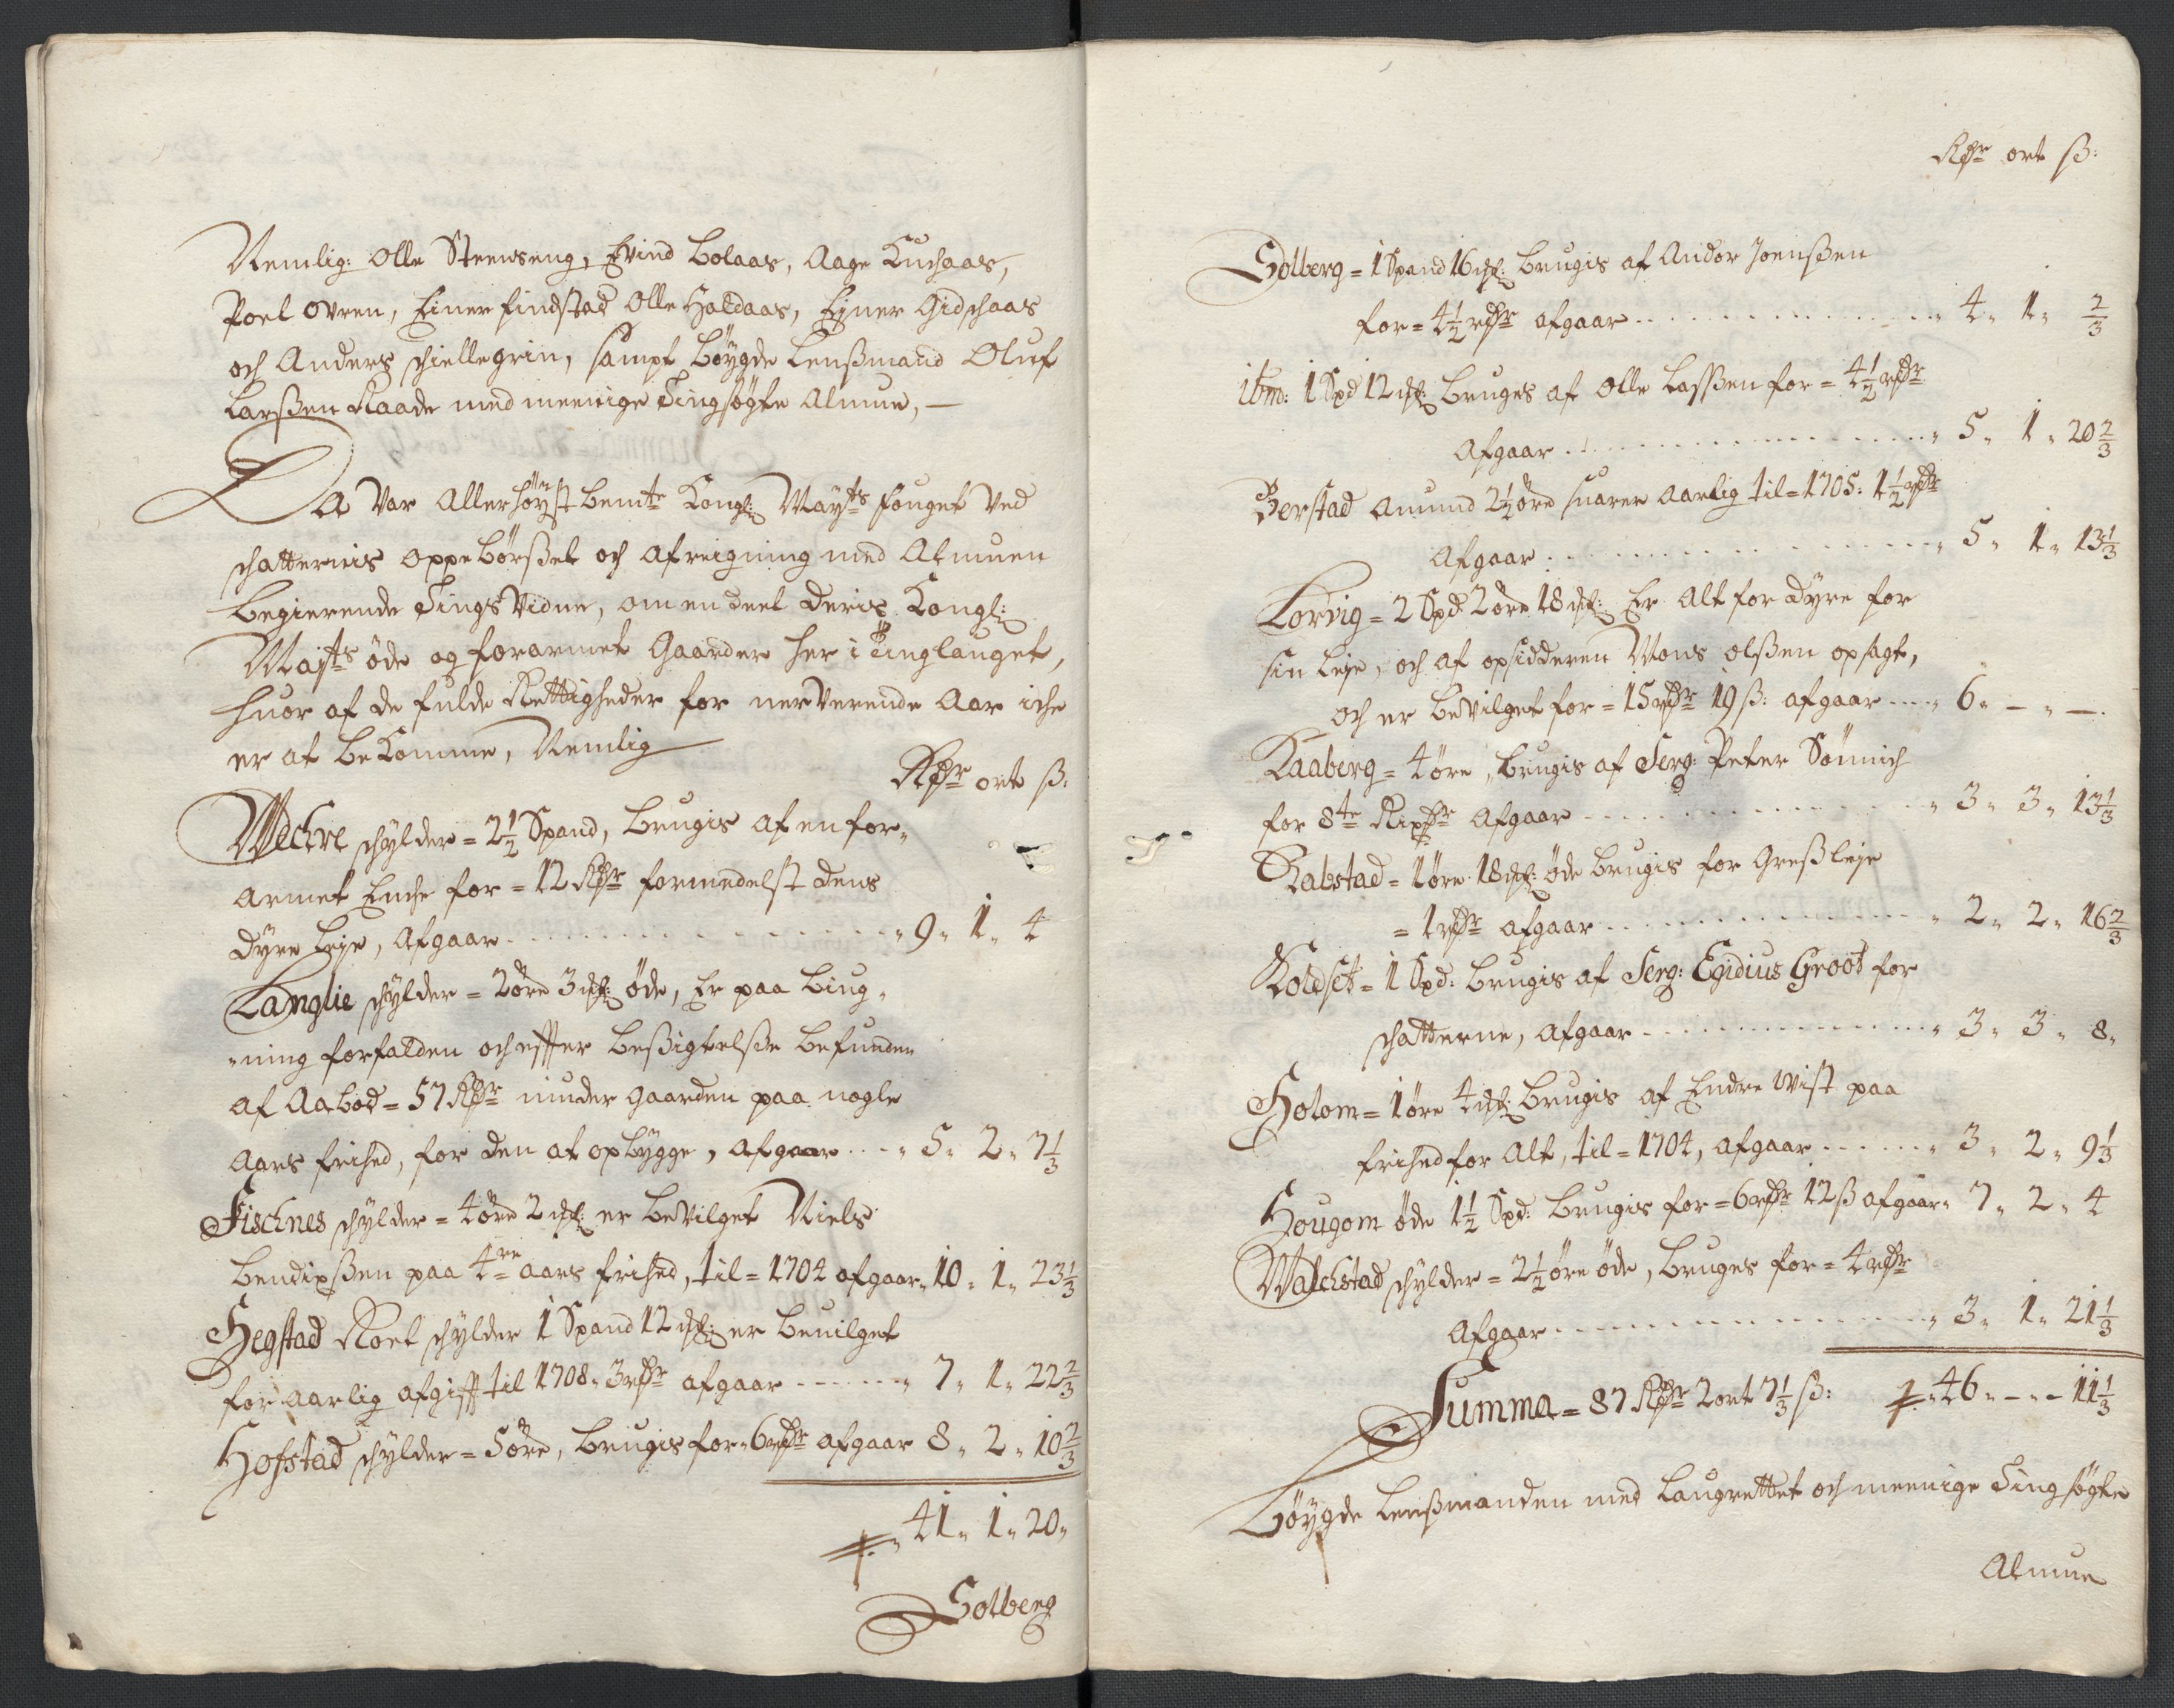 Nemlig: Olle Steenseng, Evind Bolaas, Aage Kuchaas,
Poel Ovren, Einer findstad Olle Haldaas, Ejner Gidschaas
och Anders schiellegrin, sampt böygde Lensßmand Oluf
Larsßen Raade med meenige Tingsøgte Almue, —
Da Var Allerhöyst bemte Kongl: Mayts fouget Ved
schatternis oppebörßel och afreigning med Almuen
begierende Tings Vidne, om en deel deris Kongl:
Mayts öde og forarmet Gaarder her i tinglauget,
huor af de fulde Rettigheder for nerverende Aar iche
er at bekomme, Nemlig
Rdr ort ß:
Wechre schylder = 2½ Spand, brugis af en for„
armet Enche for = 12 Rdr formedelst dens
dyre leje, afgaar „ 9 „ 1 „ 4
Langlie schylder = 2 öre 3 mk: öde, Er paa biug„
„ning forfalden och effter besßigtelsße befunden
af Aabod = 57 Rdr under gaarden paa nogle
Aars frihed, for den at opbygge, afgaar „ 5 „ 2 „ 7⅓
Fischnes schylder = 4 öre 2 mk: er beVilget Niels
bendixßen paa 4re aars frihed, til = 1704 afgaar „ 10 „ 1 „ 23⅓
Hegstad Roel schylder 1 Spand 12 mk: er beuilget
for aarlig afgifft til 1708 „ 3 rdr afgaar „ 7 „ 1 „ 22⅔
Hofstad schylder = 5 öre, brugis for „ 6 rdr afgaar 8 „ 2 „ 10⅔
„ 41 „ 1 „ 20 „
Solberg
Rdr ort ß:
Solberg = 1 Spand 16 mk: brugis af Andor Joensßen
for = 4½ rdr afgaar „ 4 „ 1 „ ⅔
ibm: 1 Spd 12 mk: bruges af Olle Lassßen for = 4½ rdr
Afgaar „ 5 „ 1 „ 20⅔
Berstad Amund 2½ öre suarer aarlig til = 1705: 1½ rdr
Afgaar „ 5 „ 1 „ 13⅓
Lorvig = 2 Spd 2 öre 18 mk: Er Alt for dyre for
sin leje, och af opsidderen Mons olsßen opsagt,
och er beVilget for = 15 rdr 19 ß: afgaar „ 6 „ – „ –
Kaaberg = 4 öre, brugis af Serg: Peter Sönnich
for 8te Rixdr Afgaar „ 3 „ 3 „ 13⅓
Rabstad = 1 öre 18 mk: öde brugis for Gresßleje
= 1 rdr afgaar „ 2 „ 2 „ 16⅔
Koldset = 1 Spd: brugis af Serg: Egidius Groot for
schatterne, Afgaar „ 3 „ 3 „ 8 „
Holom = 1 öre 4 mk: brugis af Endre Wist paa
frihed for Alt, til = 1704, afgaar „ 3 „ 2 „ 9⅓
Hougom öde 1½ Spd: brugis for = 6 rdr 12 ß afgaar „ 7 „ 2 „ 4
Walchstad schylder = 2½ öre öde, bruges for = 4 rdr
Afgaar „ 3 „ 1 „ 21⅓
Summa = 87 Rdr 2 ort 7⅓ ß: „ 46 „ – „ – 11⅓
böygde Lensßmanden med Laugrettet och meenige Tingsøgte
Almue